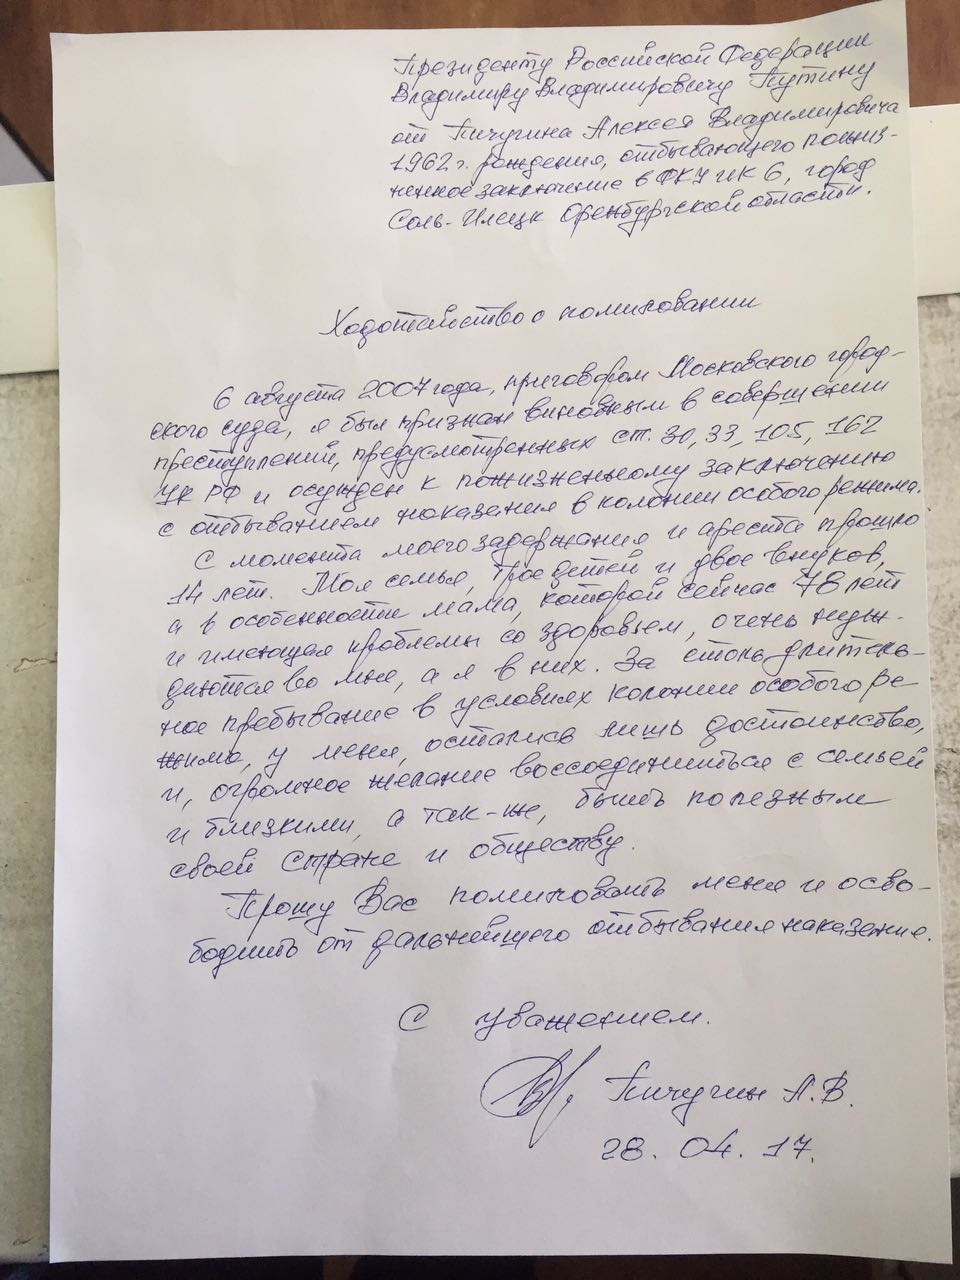 Президенту Российской Федерации
Владимиру Владимировичу Путину
от Пичугина Алексея Владимировича
1962 г. рождения, отбывающего пожиз-
ненное заключение в ФКУ ИК 6, город
Соль-Илецк Оренбургской области.
Ходатайство о помиловании
6 августа 2007 года, приговором Московского город-
ского суда, я был признан виновным в совершении
преступлений, предусмотренных ст. 30, 33, 105, 162
УК РФ и осужден к пожизненному заключению
с отбыванием наказания в колонии особого режима.
С момента моего задержания и ареста прошло
14 лет. Моя семья, трое детей и двое внуков,
а в особенности мама, которой сейчас 78 лет
и имеющая проблемы со здоровьем, очень нуж-
даются во мне, а я в них. За столь длитель-
ное пребывание в условиях колонии особого ре-
жима, у меня, остались лишь достоинство,
и, огромное желание воссоединиться с семьей
и близкими, а так-же, быть полезным
своей стране и обществу.
Прошу Вас помиловать меня и осво-
бодить от дальнейшего отбывания наказания.
С уважением.
Пичугин А. В.
28. 04. 17.